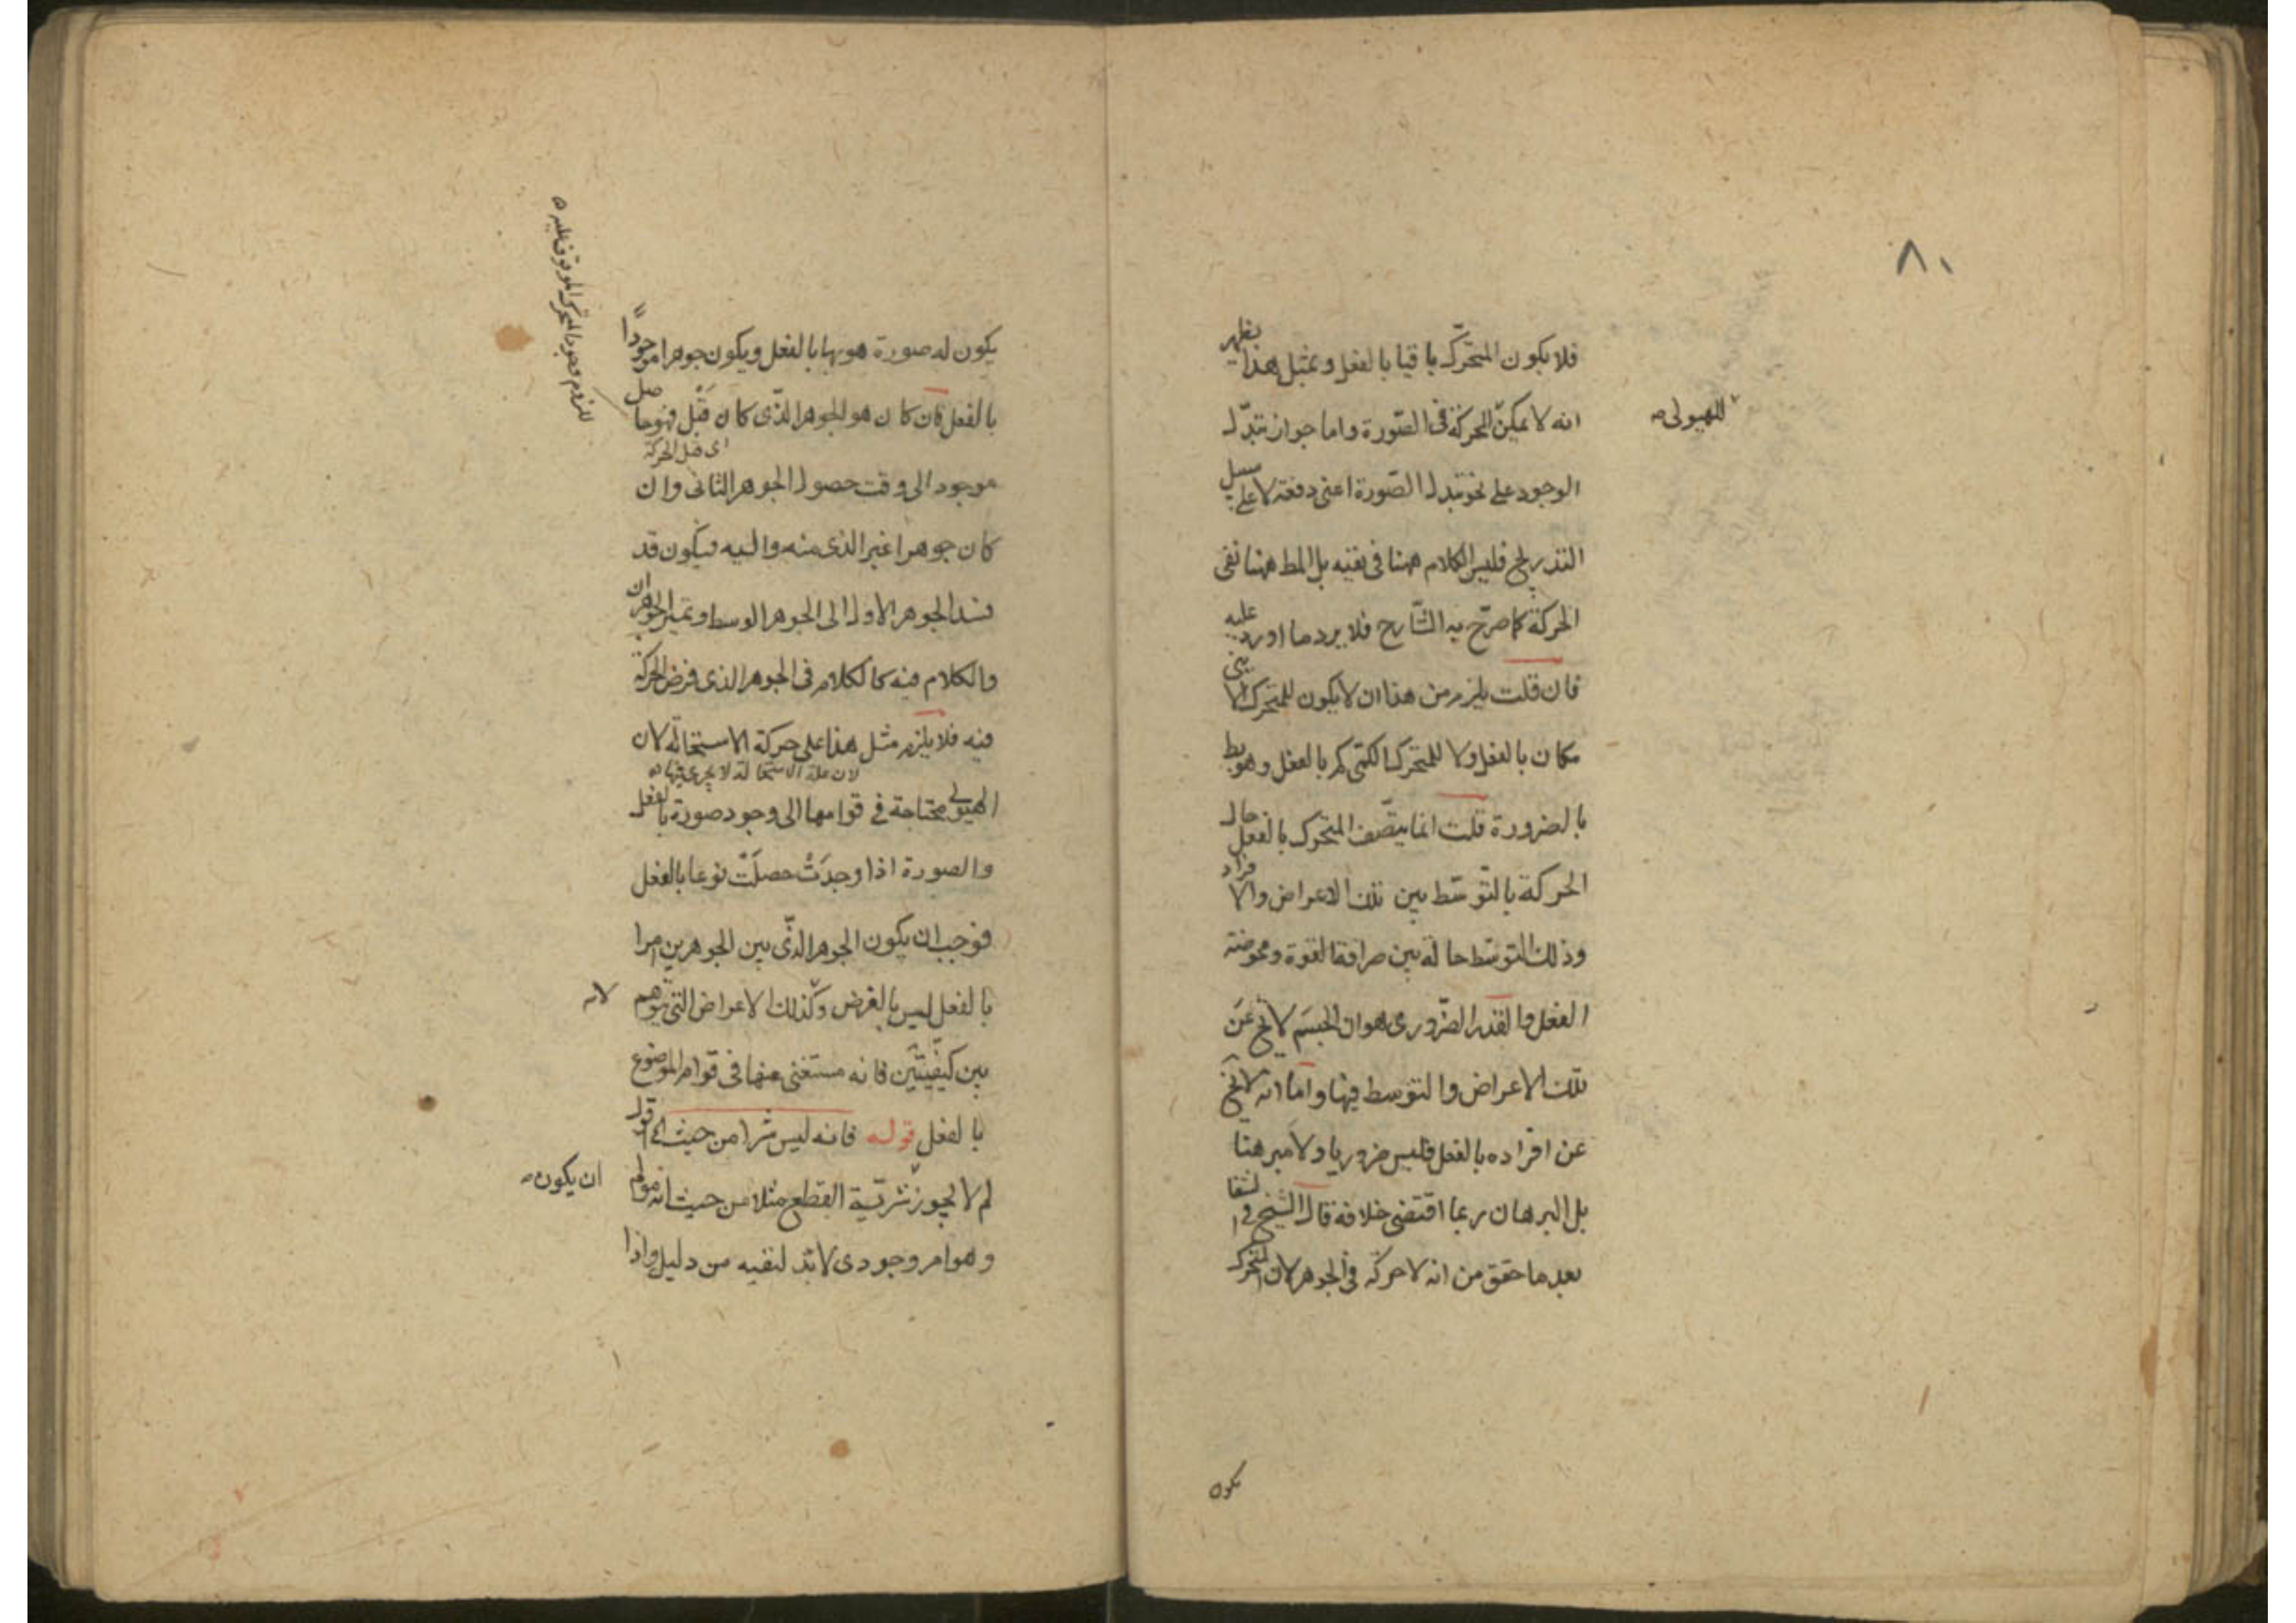 ٨٠
فلا يكون المتحرّك باقيا بالفعل وبمثل هذا يظهر
انه لا يمكن الحركة فى الصّورة واما جواز تبدّل
للهيولى صح
الوجود على نحو تبدل الصّورة اعنى دفعة لا على سبيل
التدريج فليس الكلام ههنا فى نفيه بل المط ههنا نفى
الحركة كما صرّح به الشّارح فلا يرد ما اورد عليه
فان قلت يلزم من هذا ان لا يكون للمتحرك الاينى
مكان بالفعل ولا للمتحرك الكمّى كم بالفعل وهو بط
بالضرورة قلت انما يتصّف المتحرك بالفعل حال
الحركة بالتّوسّط بين تلك الاعراض والافراد
وذلك التوسّط حالة بين صرافة القوة ومحوضة
الفعل والقدر الضّرورى هو ان الجسم لا يخ عن
تلك الاعراض والتوسط فيها واما انه لا يخ
عن افراده بالفعل فليس ضروريا ولا مبرهنا
بل البرهان ربما اقتضى خلافه قال الشّيخ فى الشفا
بعد ما حقق من انه لا حركة فى الجوهر لان المتحرك
يكون
يكون له صورة هو بها بالفعل ويكون جوهرا موجوداً
بالفعل فان كان هو الجوهر الذّى كان قَبْل فهو حاصل
اى قبل الحركة
موجود الى وقت حصول الجوهر الثانى وان
كان جوهرا غير الذى منه واليه فيكون قد
فسد الجوهر الاول الى الجوهر الوسط وتميز الجوهران
والكلام فيه كالكلام فى الجوهر الذى فرض الحركة
فيه فلا يلزم مثل هذا على حركة الاستحالة لان
لان علة الاستحالة لا يجرى فيها
الهيولى محتاجة فى قوامها الى وجود صورة بالفعل
والصورة اذا وجدَتْ حصلَتْ نوعا بالفعل
فوجب ان يكون الجوهر الذّى بين الجوهرين امرا
بالفعل ليس بالفرض وكذلك الاعراض التى يتوهم
لانه
بين كيفيّتَين فانه مستغنى عنها فى قوام الموضوع
بالفعل قوله فانه ليس شرا من حيث الخ اقول
لم لا يجوز شرّيّة القطع مثلا من حيث انه مولم
ان يكون صح
وهو امر وجودى لا بد لنفيه من دليل واذا